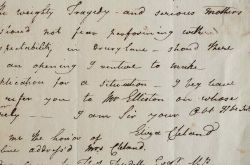 the weighty Tragedy and serious mothers
should not fear performing with
respectability in every line - should there
be an opening I venture to make
application for a situation - I beg leave
to refer you to Mr Elliston on whose
I am Sir your Obt Hble
me the honor of Eliza Cleland
line addres'd Mrs Cleland